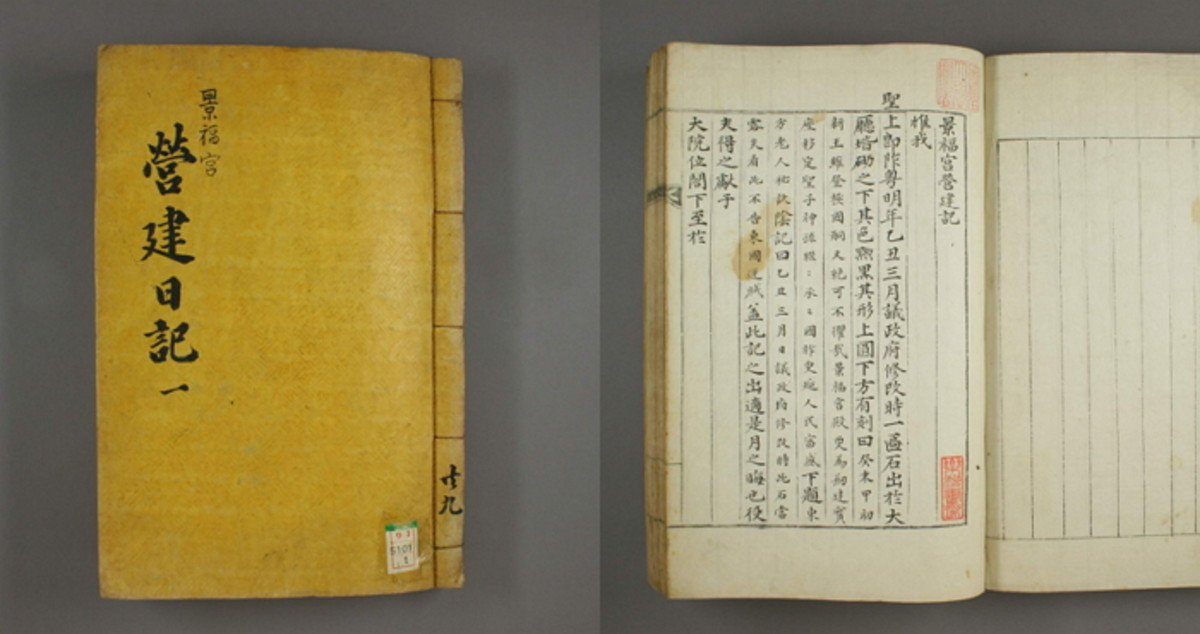 景福宮
營建日記 一
共九
5101
1
景福宮營建記
惟我
聖上卽阼粤明年乙丑三月議政府修改時一區石出於大
廳堦砌之下其色黝黑其形上圓下方有刻曰癸未甲初
新王雖登極國嗣又絶可不懼哉景福宮殿更爲刱建寶
座移定聖子神孫継々承々國祚更延人民富盛下題東
方老人秘訣陰記曰乙丑三月日議政府修改時此石當
露民看此不告東國逆賊盖此記之出適是月之晦也役
夫得之獻于
大院位閤下至於